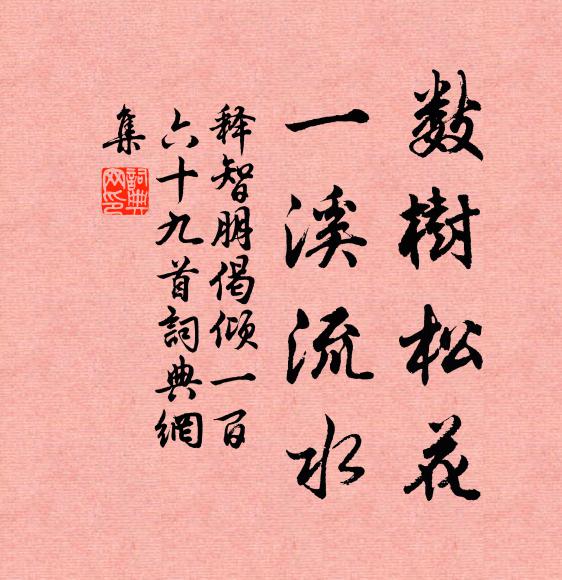 数樹松花
一溪流水
释智朋偈倾一百
六十九首詞典網
集
詞典網印